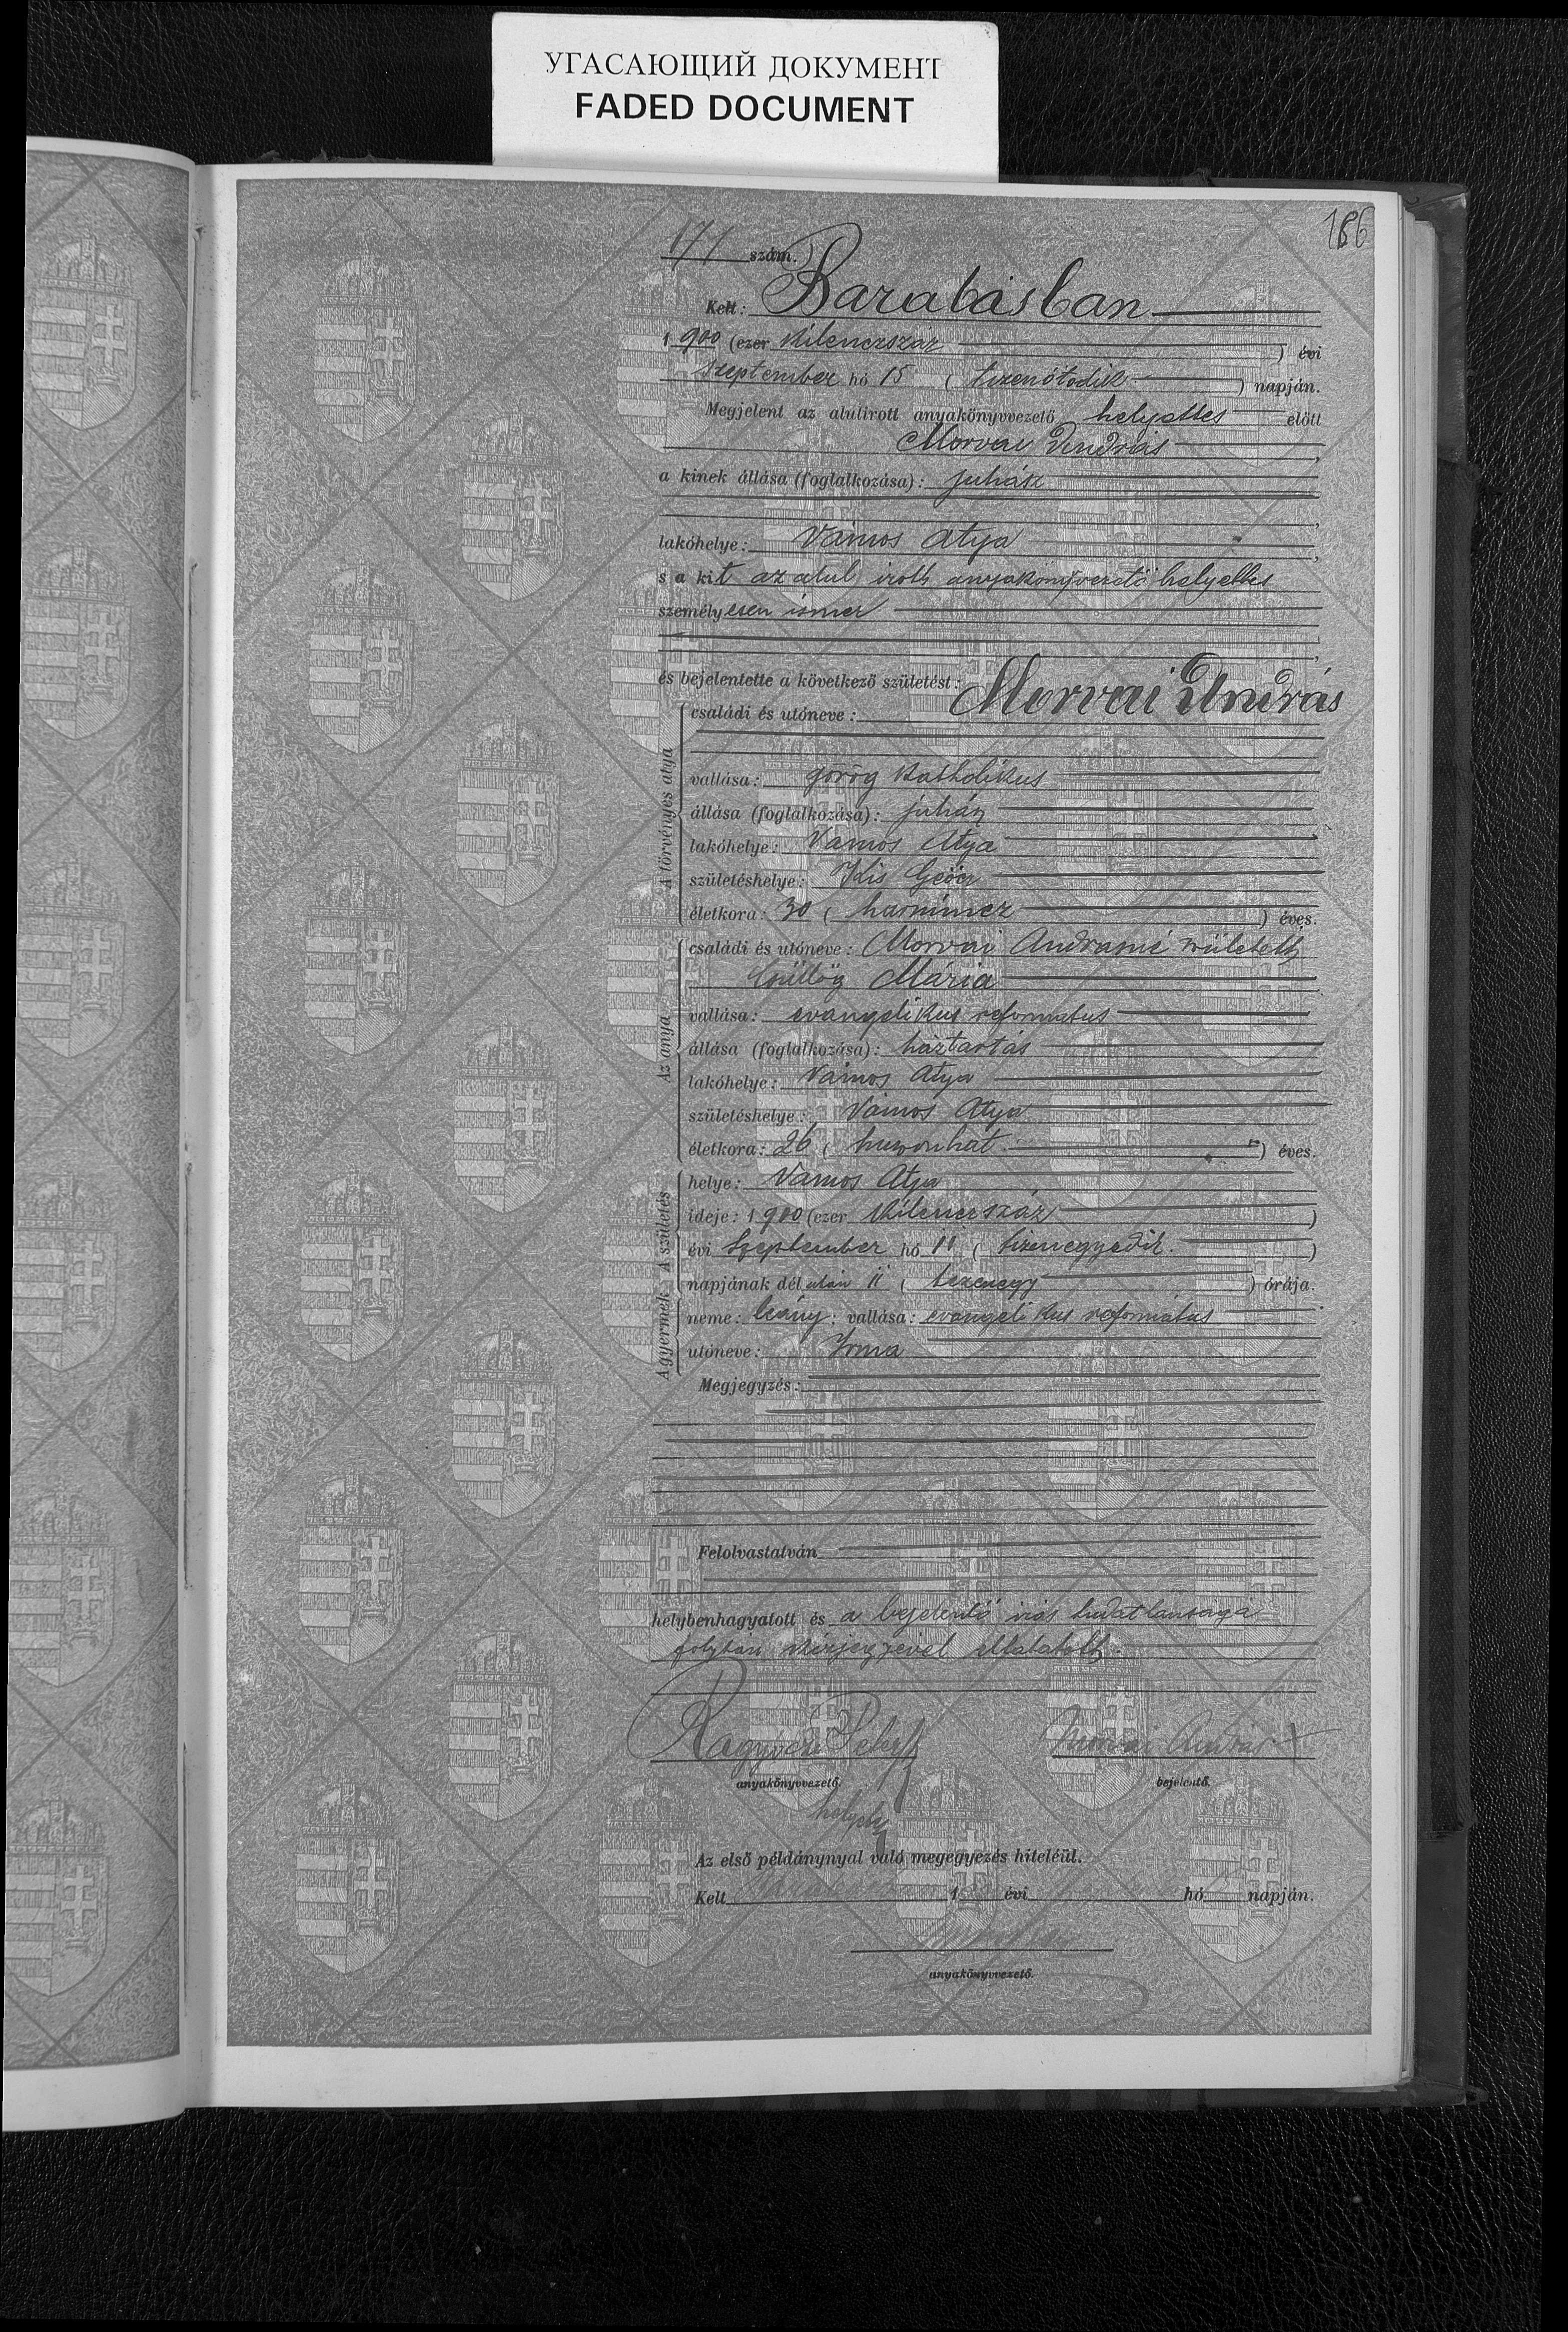 УГАСАЮЩИЙ ДОКУМЕНТ
FADED DOCUMENT
186
171 szám.
Kelt: Barabásban
1900 (ezer kilenczszáz) évi
Szeptember hó 15 (tizenötödik) napján.
Megjelent az alulirott anyakönyvvezető helyettes előtt
Morvai András,
a kinek állása (foglalkozása): juhász
lakóhelye: Vámos Atya,
s a kit az alul irott anyakönyvvezető helyettes
személyesen ismer
és bejelentette a következő születést:
A törvényes atya
családi és utóneve: Morvai András
vallása: görög katholikus
állása (foglalkozása): juhász
lakóhelye: Vámos Atya
születéshelye: Kis Geőcz
életkora: 30 (harmincz) éves.
Az anya
családi és utóneve: Morvai Andrásné született
Mária
vallása: evangelikus reformatus
állása (foglalkozása): háztartás
lakóhelye: Vámos Atya
születéshelye: Vámos Atya
életkora: 26 (huszonhat) éves.
A születés
helye: Vámos Atya
ideje: 1900 (ezer kilenczszáz)
évi Szeptember hó 11 (tizenegyedik)
napjának délután 11 (tizenegy) órája.
A gyermek
neme: leány; vallása: evangelikus református
utóneve: Irma
Megjegyzés:
Felolvastatván
helybenhagyatott és a bejelentő irás tudatlansága
folytán kézjegyével elláttatott.
Morvai András +
anyakönyvvezető. bejelentő.
helyettes
Az első példánynyal való megegyezés hiteléül.
Kelt 1 évi hó napján.
anyakönyvvezető.